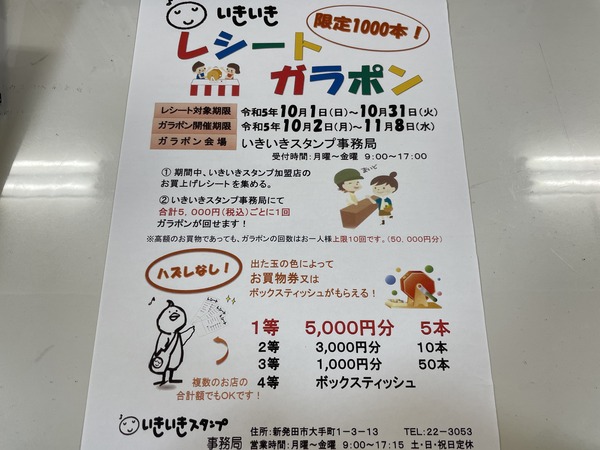 いきいき
限定1000本！
レシート
ガラポン
レシート対象期限 令和5年10月1日(日)～10月31日(火)
ガラポン開催期限 令和5年10月2日(月)～11月8日(水)
ガラポン会場 いきいきスタンプ事務局
受付時間：月曜～金曜 9:00～17:00
① 期間中、いきいきスタンプ加盟店の
お買上げレシートを集める。
まいど
② いきいきスタンプ事務局にて
合計5,000円(税込)ごとに1回
ガラポンが回せます！
※高額のお買物であっても、ガラポンの回数はお一人様上限10回です。(50,000円分)
ハズレなし！
出た玉の色によって
お買物券又は
ボックスティッシュがもらえる！
1等 5,000円分 5本
2等 3,000円分 10本
3等 1,000円分 50本
4等 ボックスティッシュ
複数のお店の
合計額でもOKです！
いきいきスタンプ
事務局
住所：新発田市大手町1－3－13 TEL：22－3053
営業時間：月曜～金曜 9:00～17:15 土・日・祝日定休